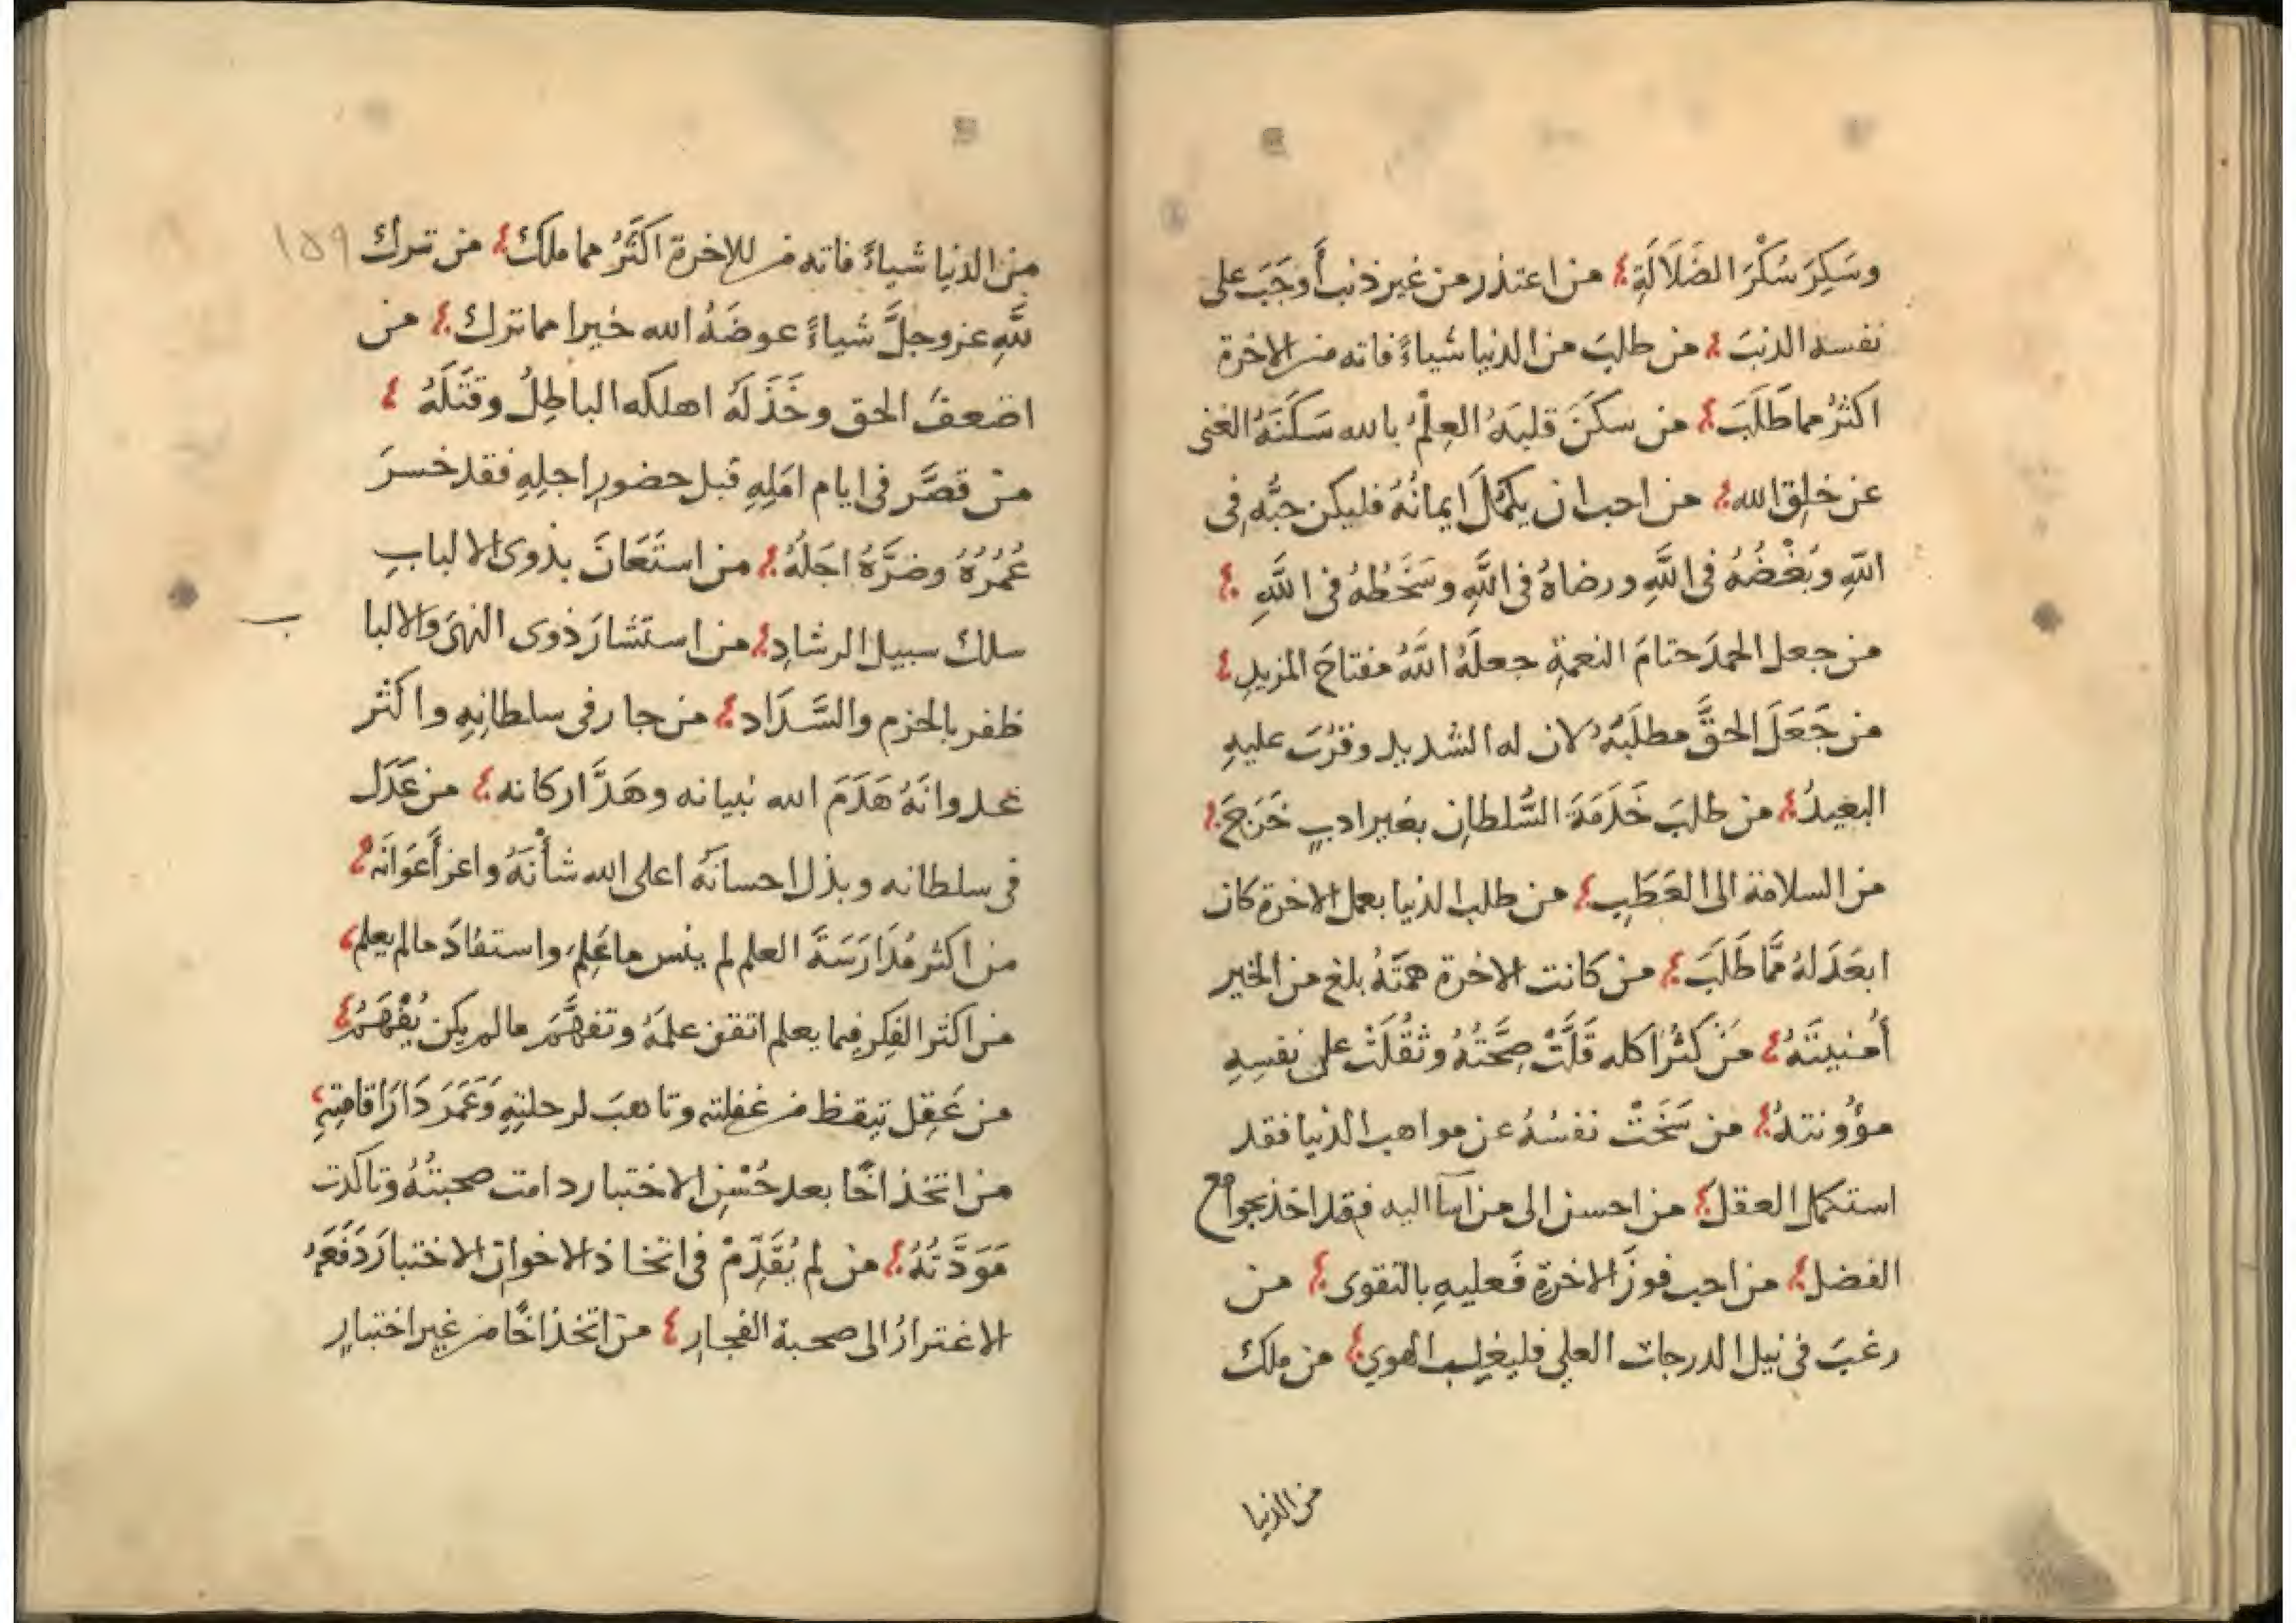 وسَكِرَ سُكْرَ الضَلَالَةِ من اعتذر من غير ذنب أوجَبَ على
نفسه الذنبَ من طلبَ من الدنيا شياءً فاته من الاخرة
اكثرُ مما طَلَبَ من سكَنَ قلبَهُ العِلْمُ بالله سَكَنَهُ الغنى
عن خلق الله من احب ان يكمُلَ ايمانُهُ فليكن حبُّه فى
اللهِ وبُغْضُهُ فى اللَّهِ ورضاهُ فى اللَّهِ وسَخَطُهُ فى اللَّهِ
من جعل الحمدَ ختامَ النعمةِ جعلَهُ اللَّهُ مفتاحَ المزيدِ
من جَعَلَ الحقَّ مطلَبَهُ لان له الشديد وقرُبَ عليهِ
البعيدُ من طلبَ خَدَمَةَ السُّلطانِ بغير ادبٍ خَرَجَ
من السلامة الى العَطَبِ من طلب الدنيا بعمل الاخرة كان
ابعَدَ لهُ مَّما طَلَبَ من كانت الاخرة همتَهُ بلغ من الخير
أُمنيتَهُ مَن كَثُرَ اكله قَلَّتْ صِحَّتُهُ وثقُلَتْ على نفسِهِ
مؤُونتهُ من سَخَتْ نفسُهُ عن مواهب الدنيا فقد
استكمل العقل من احسن الى من اسآ اليه فقد اخذ بجوامع
الفضل من احب فوزَ الاخرةِ فَعليهِ بالتقوى من
رغبَ فى نيل الدرجات العلى فليغلب الهوي من ملك
من الدنيا
١٥٩
من الدنيا شياءً فاته من للاخرة اكثَرُ مما ملك من ترك
للَّهِ عزوجلَّ شياءً عوضَهُ الله خيرا مما ترك من
اضعفَ الحق وخَذَلَهُ اهلكه الباطِلُ وقتَلَهُ
منْ قصَّر فى ايام امَلِهِ قبل حضورِ اجلِهِ فقد خسرَ
عُمُرُهُ وضرَّهُ اجَلُهُ من استَعَانَ بذوى الالبابِ
سلك سبيل الرشادِ من استشارَ ذوى النهىَ والالبا
ب
ظفر بالحزم والسَّدَاد من جار فى سلطانِهِ واكثر
عدوانَهُ هَدَمَ الله بنيانه وهَدَّ اركانه من عَدَل
فى سلطانه وبذل احسانَهُ اعلى الله شأْنَهُ واعز أَعوَانَه
من اكثر مُدَارَسَةَ العلم لم ينس ما عَلِمَ واستفادَ مالم يعلم
من اكثر الفِكر فِيما يعلم اتقن علمَهُ وتفهَّمَ مالم يكن يُفْهَمُ
من عَقِل تيقظ من غفلته وتاهبَ لرحلتِهِ وَعَمَرَ دَارَ اقامتِهِ
من اتخذ اخًا بعد حُسْنِ الاختبار دامت صحبتُهُ وتاكدت
مَوَدَّتُهُ من لم يُقَدِّمْ فى اتخاذ الاخوان الاختبارَ دَفَعَهُ
الاغترارُ الى صحبة الفجارِ من اتخذ اخًا من غير اختبارٍ